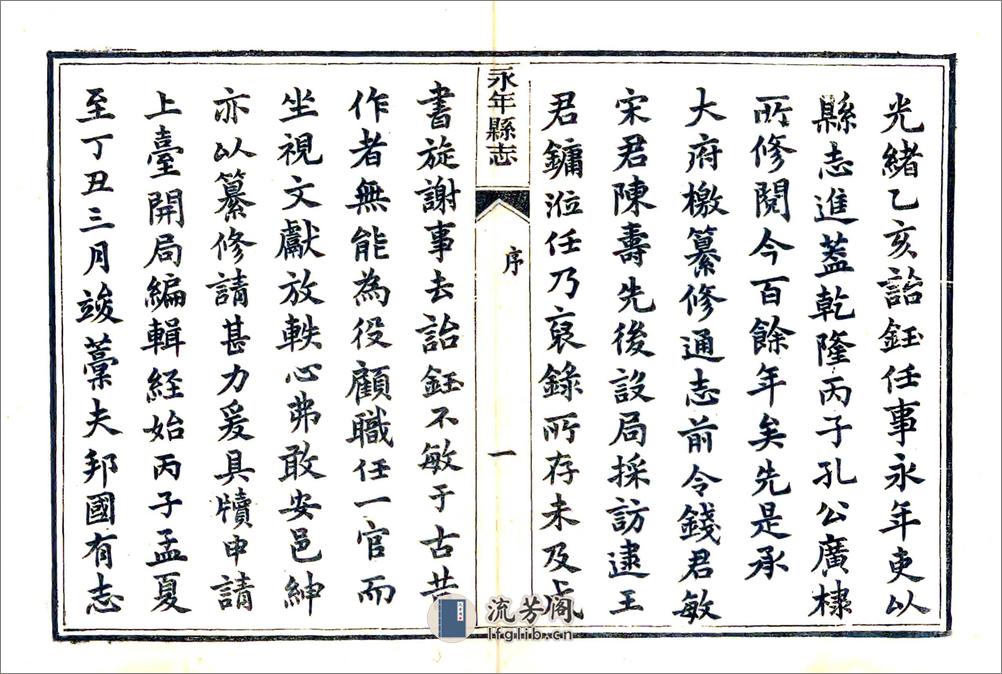 光緒乙亥詒鈺任事永年吏以
縣志進蓋乾隆丙子孔公廣棣
所修閱今百餘年矣先是承
大府檄纂修通志前令錢君敏
宋君陳壽先後設局採訪逮王
君鏞涖任乃裒錄所存未及成
永年縣志
序
一
書旋謝事去詒鈺不敏于古昔
作者無能為役顧職任一官而
坐視文獻放軼心弗敢安邑紳
亦以纂修請甚力爰具牘申請
上臺開局編輯経始丙子孟夏
至丁丑三月竣藳夫邦國有志
流芳阁
lfglib.cn